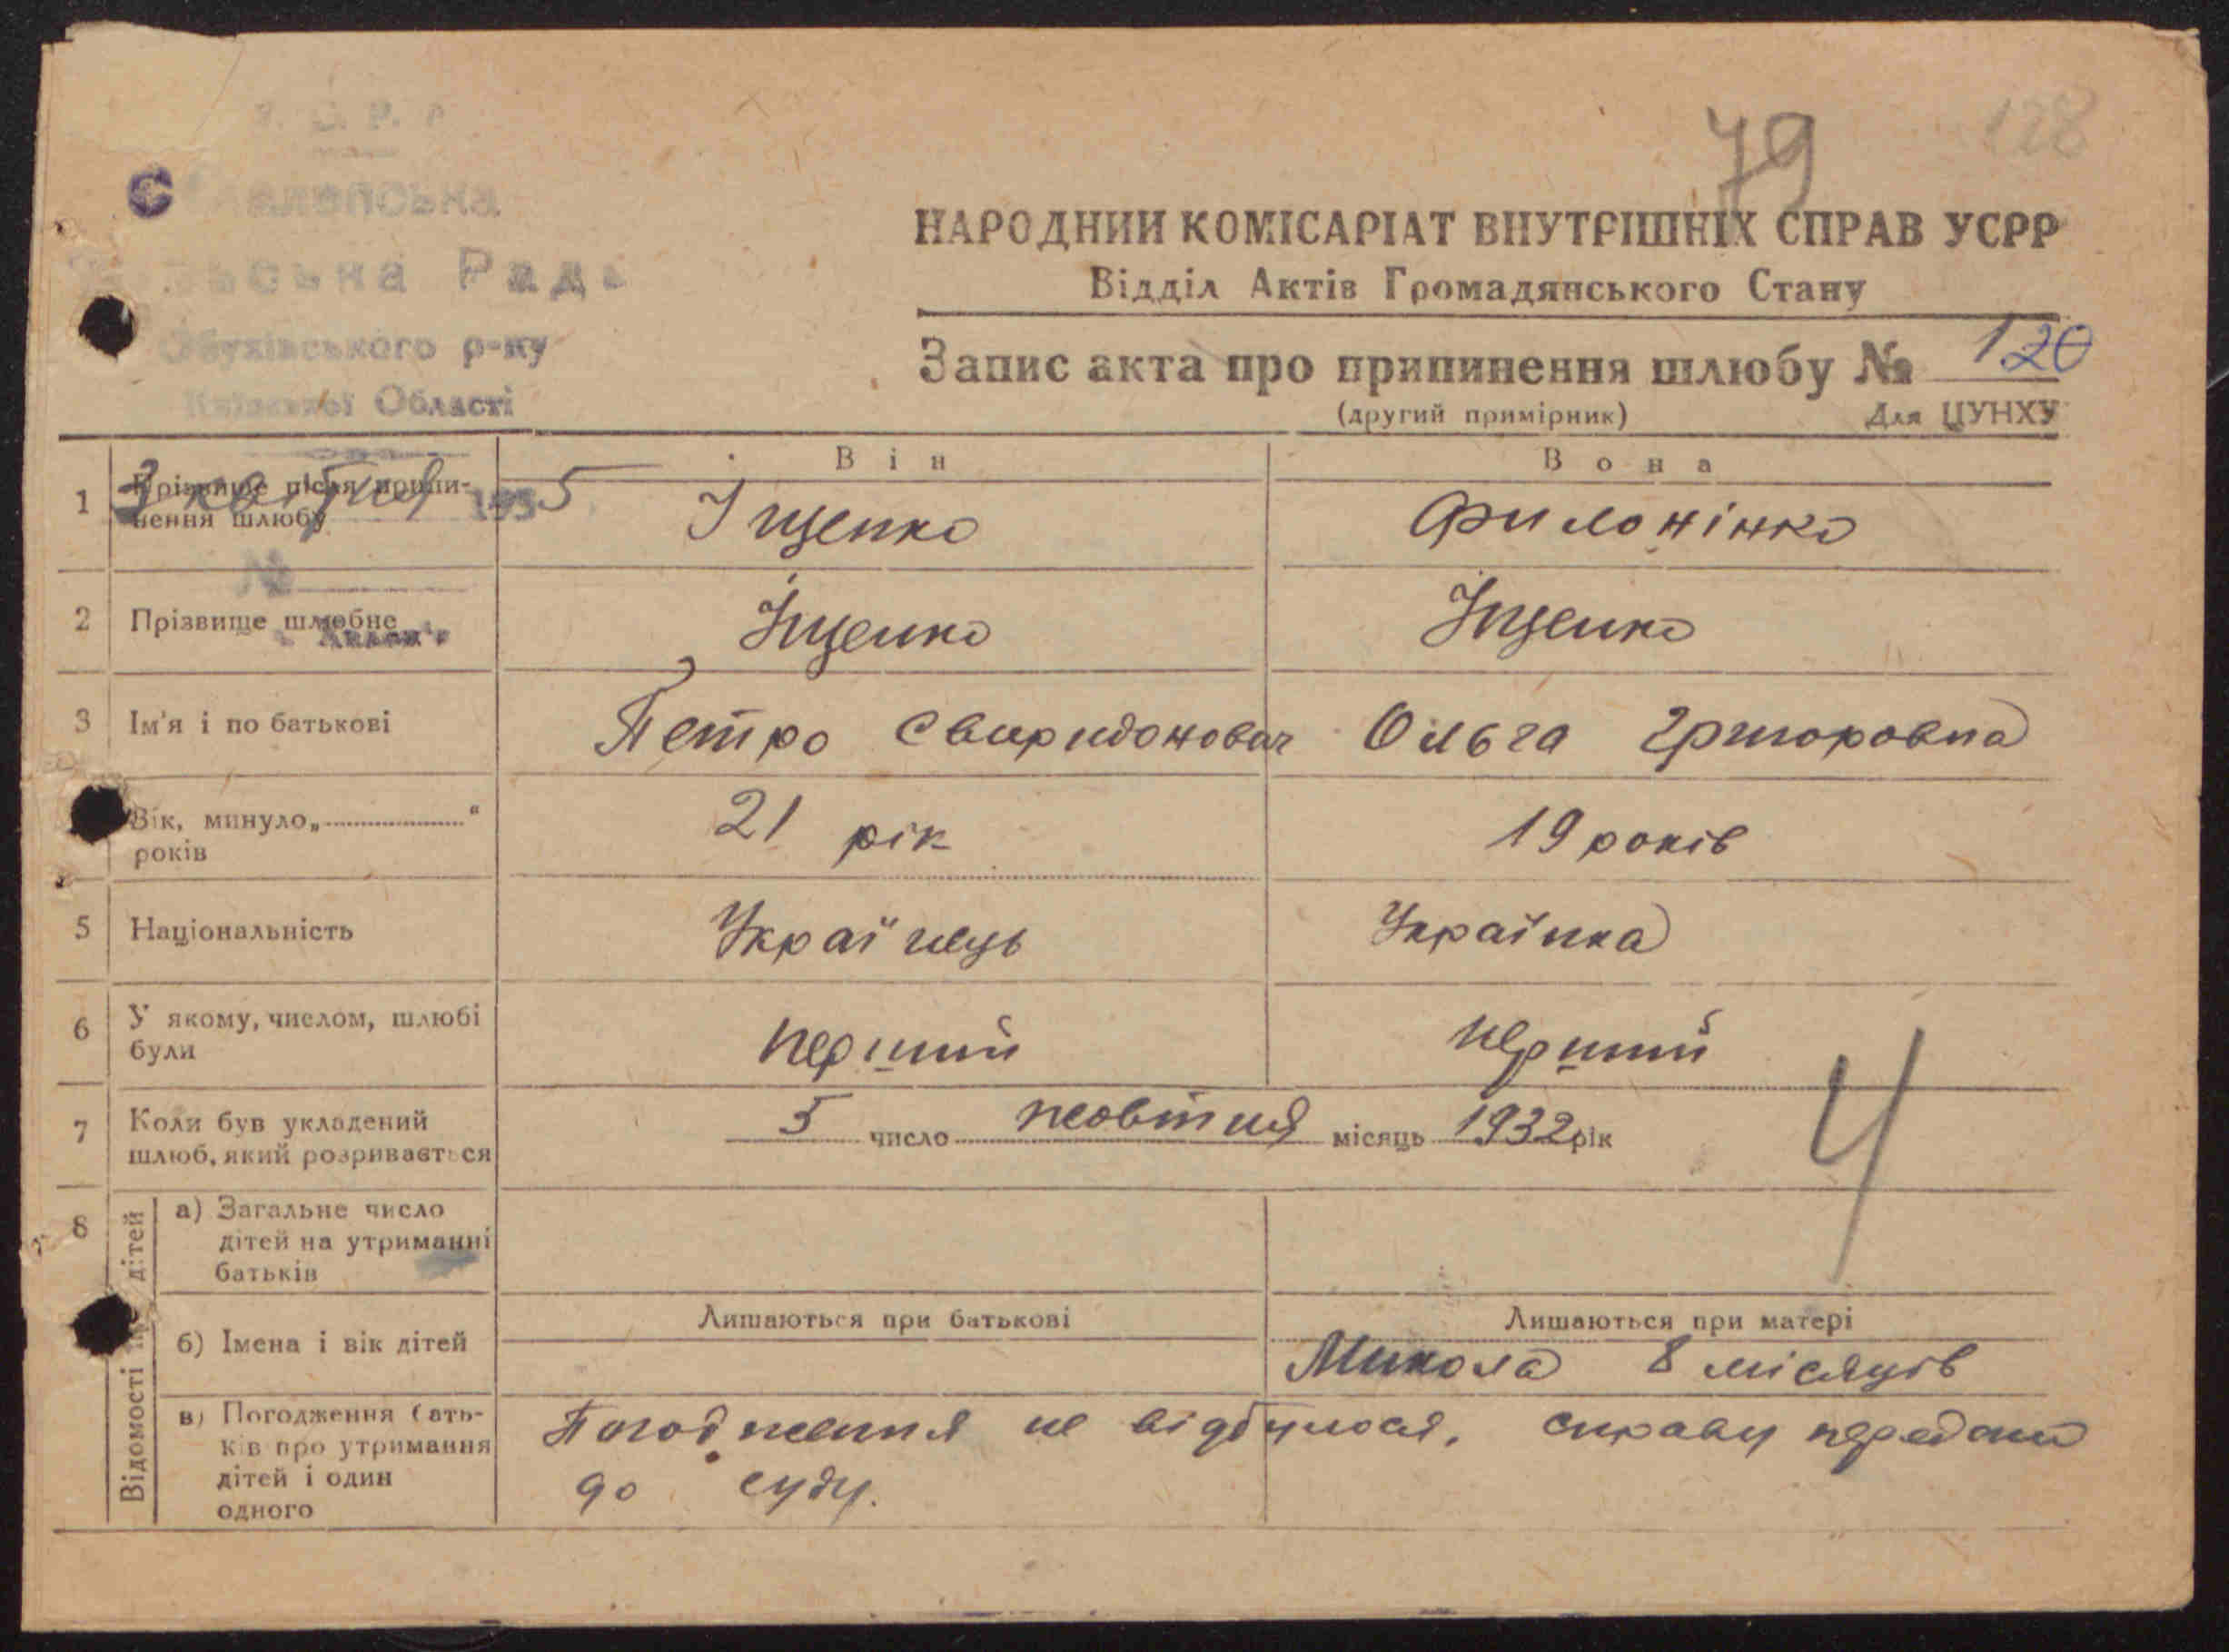 79
128
Рада
р-ну
Області
НАРОДНИЙ КОМІСАРІАТ ВНУТРІШНІХ СПРАВ УСРР
Відділ Актів Громадянського Стану
Запис акта про припинення шлюбу № 120
(другий примірник) Для ЦУНХУ
Він Вона
1 Прізвище після припи-
нення шлюбу
1935
Іщенко Филонінко
№
2 Прізвище шлюбне Іщенко Іщенко
3 Ім'я і по батькові Петро Свиридонович Ольга Григоровна
Вік, минуло „ “
років
21 рік 19 років
5 Національність Українець Українка
6 У якому, числом, шлюбі
були
перший перший
7 Коли був укладений
шлюб, який розривається
5 число жовтня місяць 1932 рік
4
8 Відомості про дітей
а) Загальне число
дітей на утриманні
батьків
Лишаються при батькові Лишаються при матері
б) Імена і вік дітей Микола 8 місяців
в) Погодження бать-
ків про утримання
дітей і один
одного
Погодження не відбулося, справу передано
до суду.